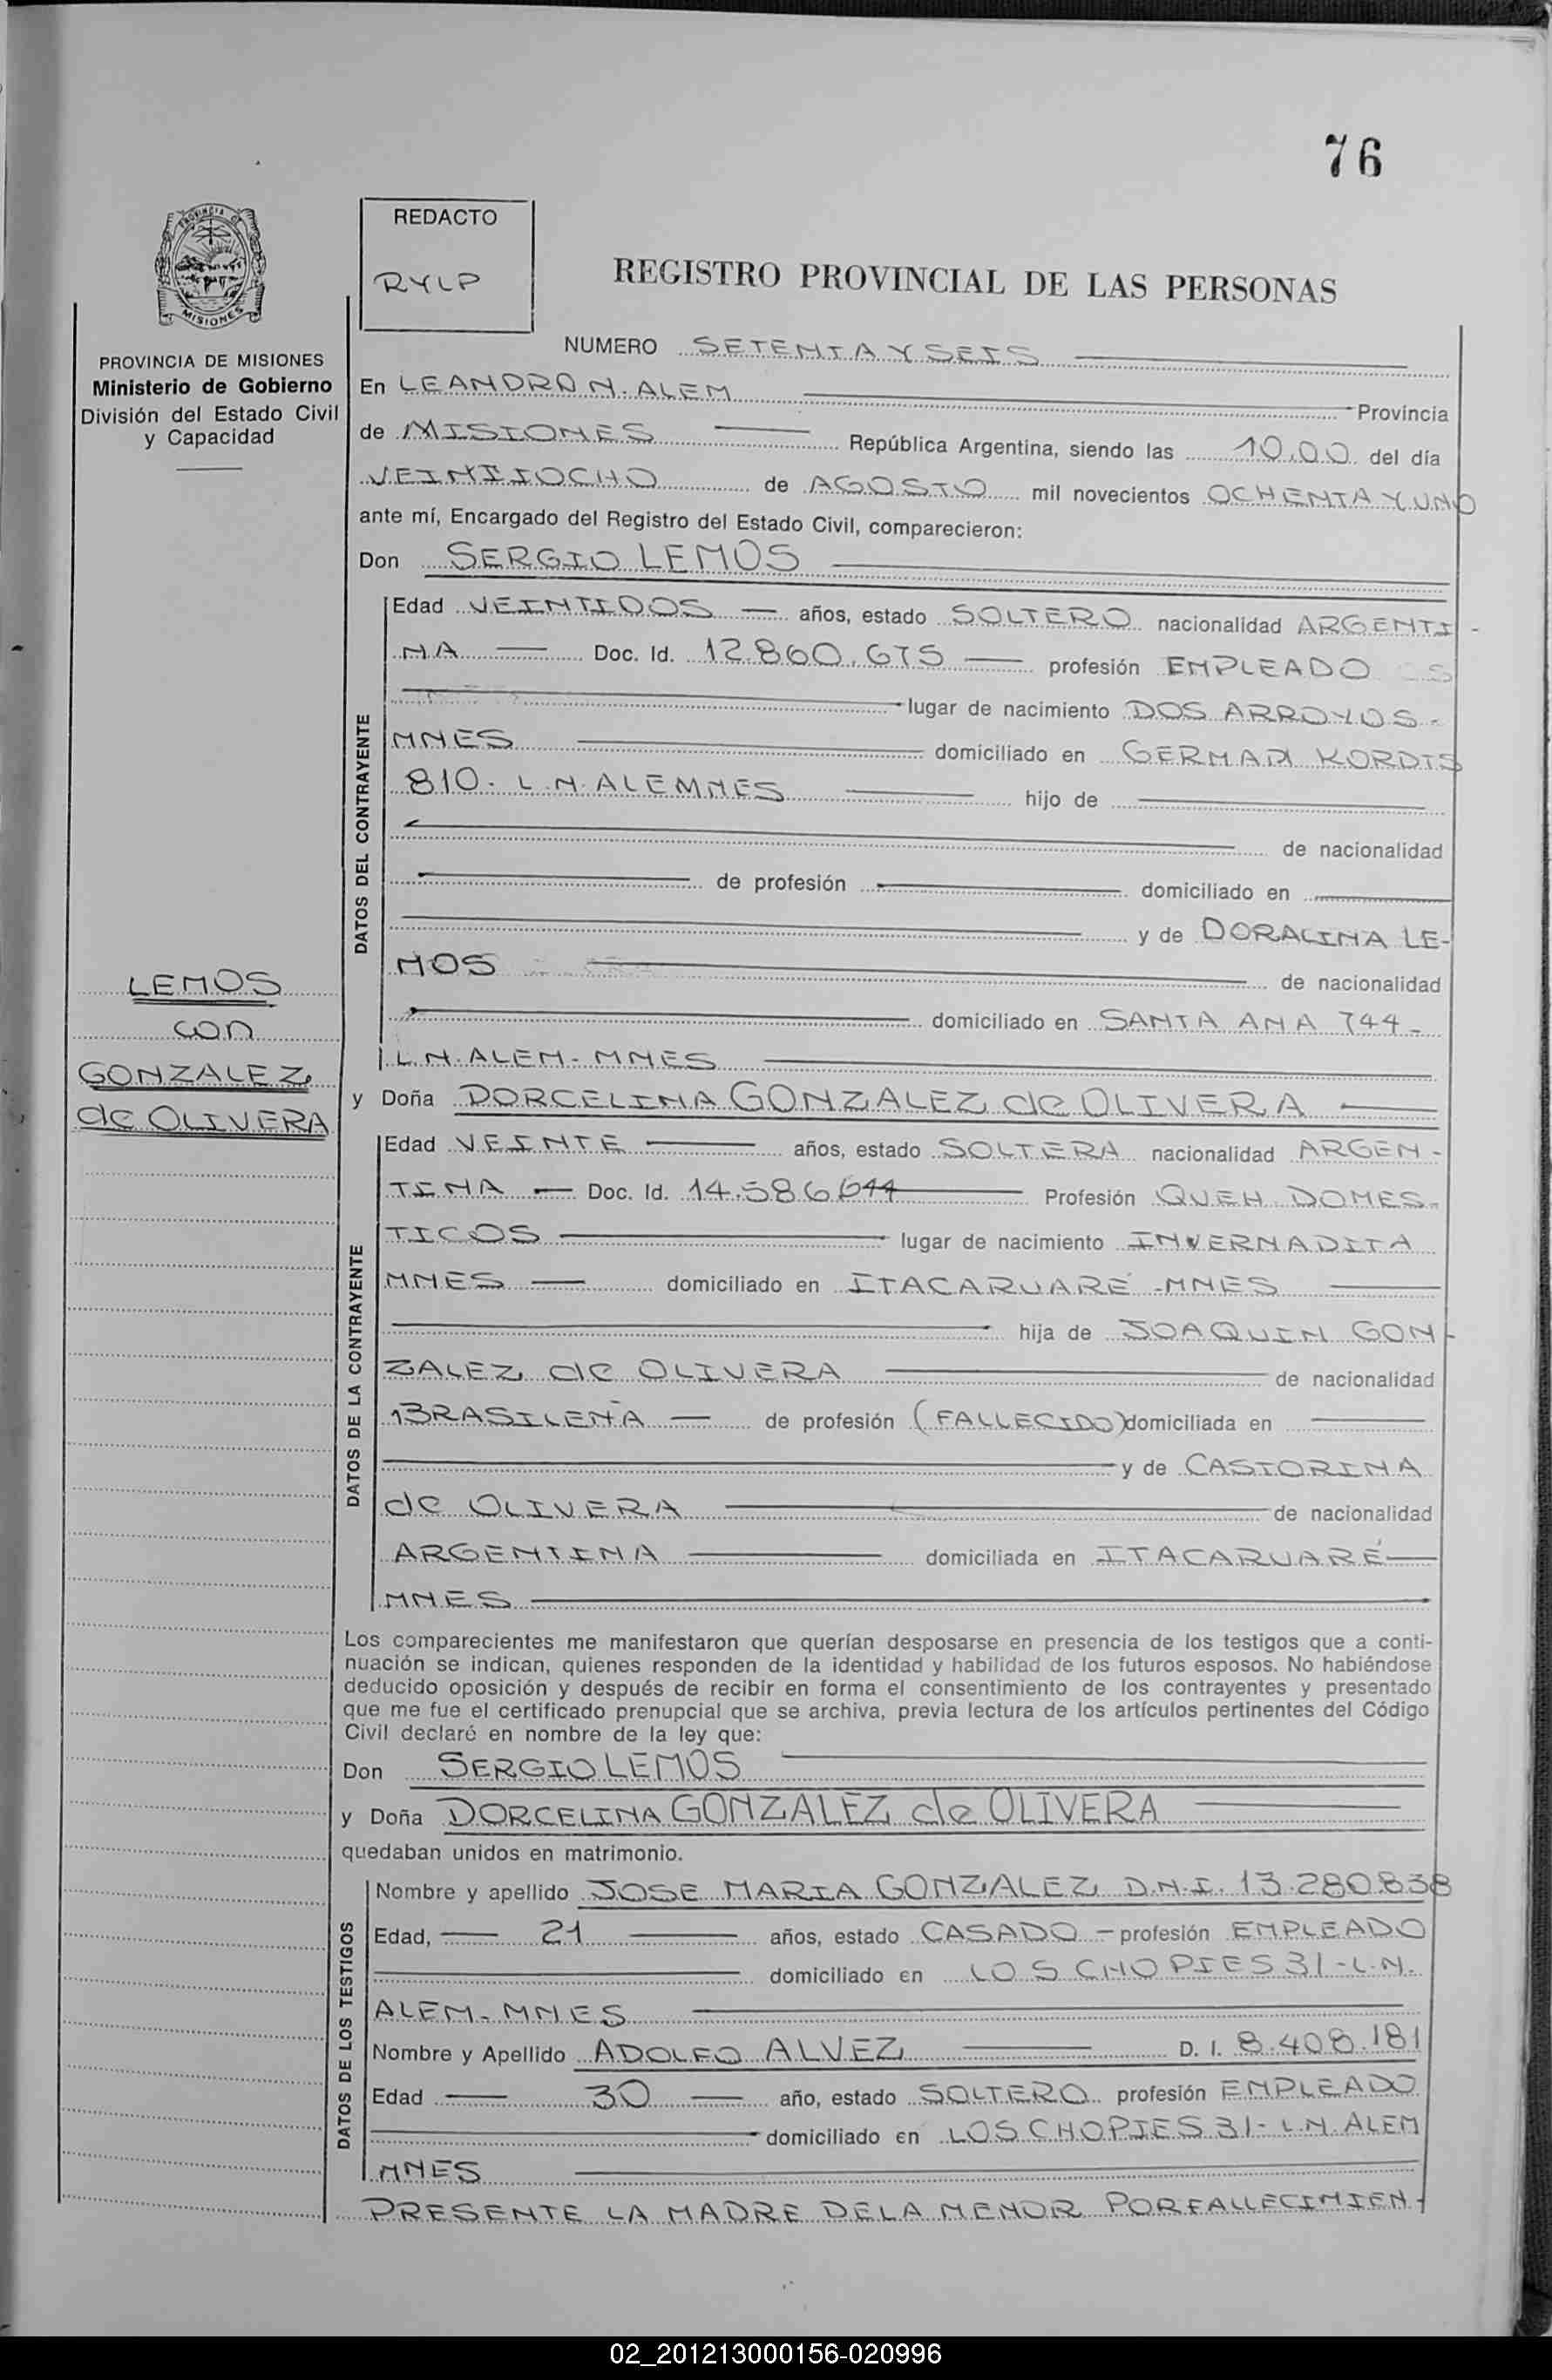 76
PROVINCIA DE MISIONES
REDACTO
RYLP
REGISTRO PROVINCIAL DE LAS PERSONAS
PROVINCIA DE MISIONES
Ministerio de Gobierno
División del Estado Civil
y Capacidad
NUMERO SETENTA Y SEIS
En LEANDRO N. ALEM Provincia
de MISIONES República Argentina, siendo las 10,00 del día
VEINTIOCHO de AGOSTO mil novecientos OCHENTA Y UNO
ante mí, Encargado del Registro del Estado Civil, comparecieron:
Don SERGIO LEMOS
DATOS DEL CONTRAYENTE
Edad VEINTIDOS años, estado SOLTERO nacionalidad ARGENTI-
NA Doc. Id. 12.860.675 profesión EMPLEADO
lugar de nacimiento DOS ARROYOS-
MNES domiciliado en GERMAN KORDTS
810. L.N. ALEM MNES hijo de
de nacionalidad
de profesión domiciliado en
y de DORALINA LE-
MOS de nacionalidad
domiciliado en SANTA ANA 744-
L.N. ALEM- MNES
LEMOS
con
GONZALEZ
de OLIVERA
y Doña DORCELINA GONZALEZ de OLIVERA
DATOS DE LA CONTRAYENTE
Edad VEINTE años, estado SOLTERA nacionalidad ARGEN-
TINA Doc. Id. 14.586.644 Profesión QUEH. DOMES-
TICOS lugar de nacimiento INVERNADITA
MNES domiciliado en ITACARUARÉ -MNES
hija de JOAQUIN GON-
ZALEZ de OLIVERA de nacionalidad
BRASILEÑA de profesión (FALLECIDO) domiciliada en
y de CASTORINA
de OLIVERA de nacionalidad
ARGENTINA domiciliada en ITACARUARÉ
MNES
Los comparecientes me manifestaron que querían desposarse en presencia de los testigos que a conti-
nuación se indican, quienes responden de la identidad y habilidad de los futuros esposos. No habiéndose
deducido oposición y después de recibir en forma el consentimiento de los contrayentes y presentado
que me fue el certificado prenupcial que se archiva, previa lectura de los artículos pertinentes del Código
Civil declaré en nombre de la ley que:
Don SERGIO LEMOS
y Doña DORCELINA GONZALEZ de OLIVERA
quedaban unidos en matrimonio.
DATOS DE LOS TESTIGOS
Nombre y apellido JOSE MARIA GONZALEZ D.N.I. 13.280.838
Edad, 21 años, estado CASADO - profesión EMPLEADO
domiciliado en LOS CHOPIES 31-L.N.
ALEM- MNES
Nombre y Apellido ADOLFO ALVEZ D. I. 8.408.181
Edad 30 año, estado SOLTERO profesión EMPLEADO
domiciliado en LOS CHOPIES 31- L.N. ALEM
MNES
PRESENTE LA MADRE DE LA MENOR POR FALLECIMIEN-
02_201213000156-020996